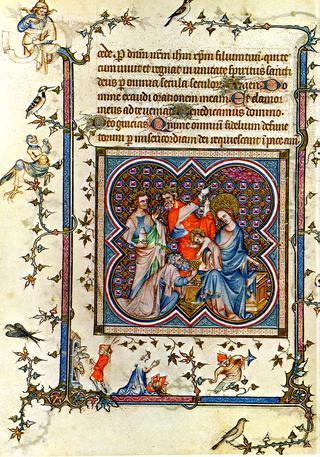 cede. P dnm nrm ihm xpm filium tuum qui te
cum uiuit et regnat in unitate spiritus sancti
deus p omnia secula seculor. Amen. Do
mine exaudi orationem meam. Et clamor
meus ad te ueniat. Benedicamus domino.
Deo gracias. Anime omnium fidelium defunc
torum p misericordiam dei requiescant in pace. am